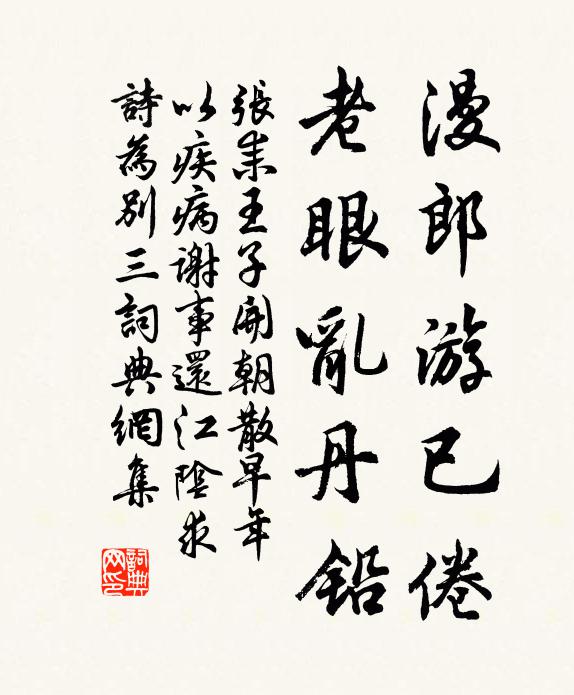 漫郎游已倦
老眼亂丹鉛
張耒王子開朝散早年
以疾病謝事還江陰求
詩為別三詞典網集
詞典網印